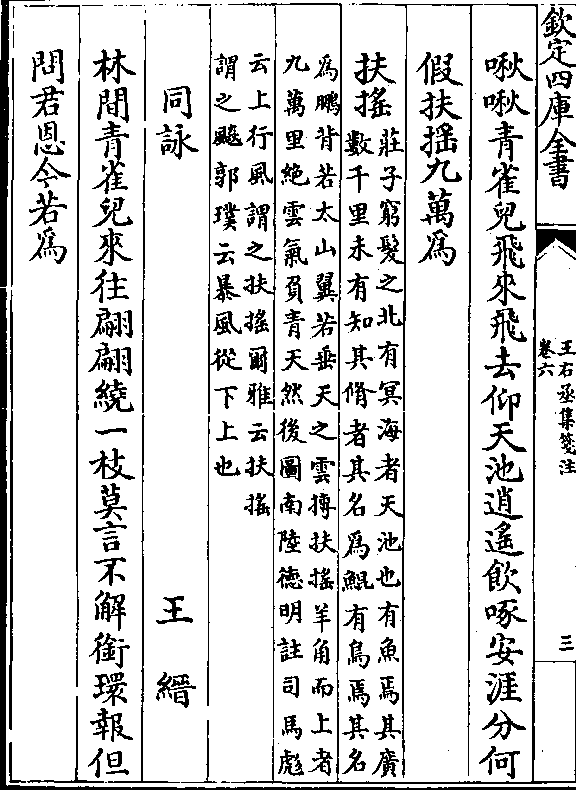 欽定四庫全書
王右丞集箋注
卷六
三
啾啾青雀兒飛來飛去仰天池逍遙飲啄安涯分何
假扶摇九萬爲
扶搖
莊子窮髮之北有冥海者天池也有魚焉其廣
數千里未有知其脩者其名爲鯤有鳥焉其名
爲鵬背若太山翼若垂天之雲摶扶搖羊角而上者
九萬里絶雲氣負青天然後圖南陸德明註司馬彪
云上行風謂之扶搖爾雅云扶搖
謂之飈郭璞云暴風從下上也
同詠 王縉
林間青雀兒來往翩翩繞一枝莫言不解銜環報但
問君恩今若爲